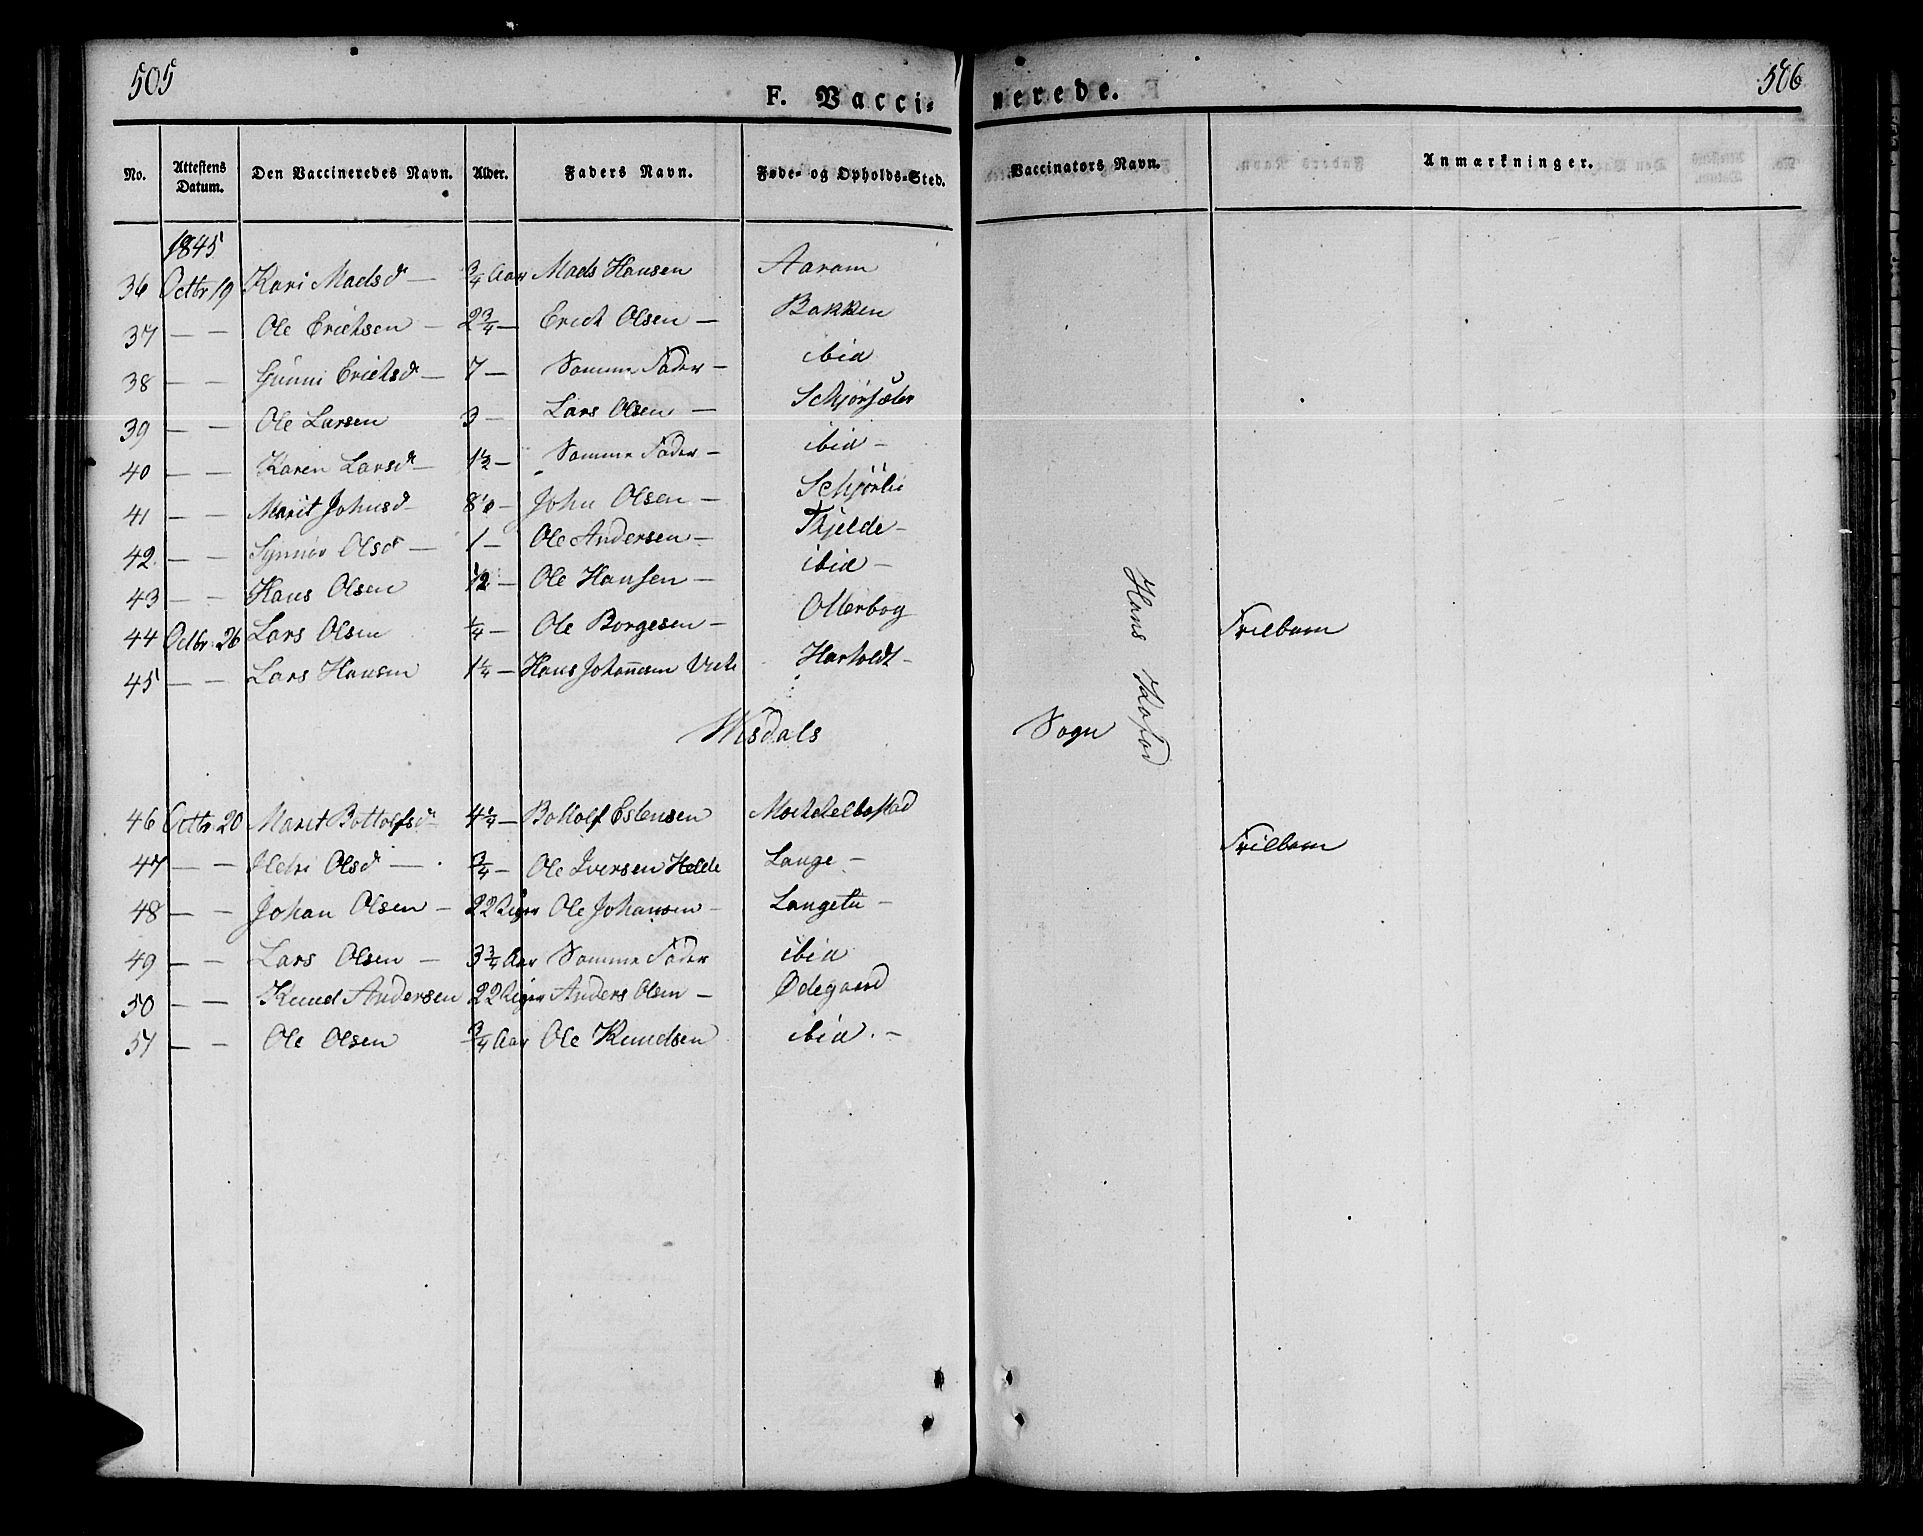 505
506
F. Vacci-
nerede.
No. Attestens Datum. Den Vaccineredes Navn. Alder. Faders Navn. Føde- og Opholds-Sted. Vaccinators Navn. Anmærkninger.
1845
36 Octbr 19 Kari Madsd — 3/4 Aar Mads Hansen Aaram
37 — — Ole Erichsen — 2 3/4 — Erich Olsen — Bakken
38 — — Gunni Erichsd — 7 — Samme Fader — ibid
39 — — Ole Larsen 3 — Lars Olsen — Schjørsæter
40 — — Karen Larsd — 1 1/2 — Samme Fader — ibid —
41 — — Marit Johnsd — John Olsen — Schjørli
42. — — Synnøv Olsd — 1 — Ole Andersen — Thjelde —
43 — — Hans Olsen 1/2 — Ole Hansen — ibid —
44 Octbr. 26 Lars Olsen 1/4 — Ole Borgesen — Otterbog
45 — — Lars Hansen 1 1/4 — Hans Johannesen Harholdt —
Hans Kofod
Frilbarn
Wisdals Sogn
46 Octbr. 20 Marit Bottolfsd — 4 1/4 — Bottolf Estensen
47 — — Olsd — 3/4 — Ole Iversen Helde Lange —
Frilbarn
48 — — Johan Olsen — 22 Uger Ole Johansen — Langeta —
49 — — Lars Olsen — 3 3/4 Aar Samme Fader ibid
50 — — Knud Andersen 22 Uger Anders Olsen — Ødegaard
51 — — Ole Olsen 3/4 Aar Ole Knudsen ibid. —